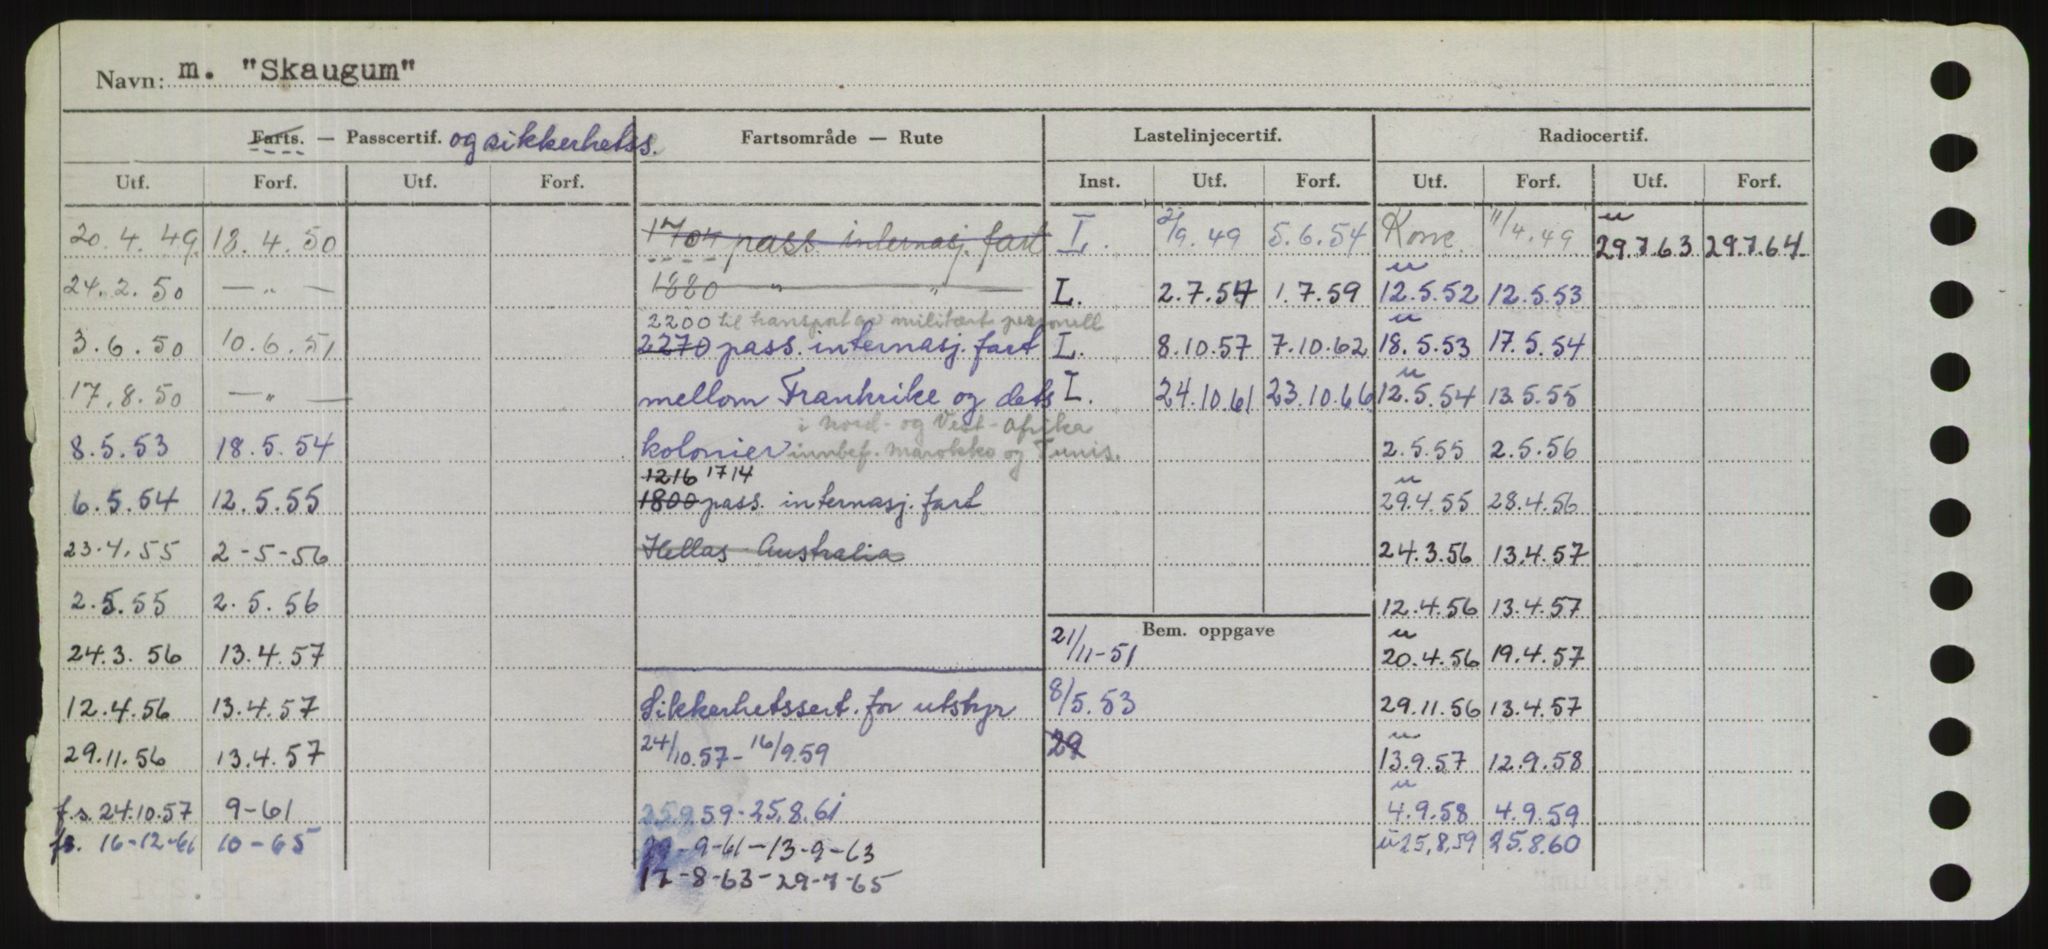 Navn: m. "Skaugum"
Farts. — Passcertif. og sikkerhetss. Fartsområde — Rute Lastelinjecertif. Radiocertif.
Utf. Forf. Utf. Forf. Inst. Utf. Forf. Utf. Forf. Utf. Forf.
20.4.49 18.4.50 1704 pass. internasj. fart I. 2/9.49 5.6.54 Korre 11/4.49 u 29.7.63 29.7.64
24.2.50 — " — 1880 " " L. 2.7.54 1.7.59 u 12.5.52 12.5.53
2200 til transport av militært personell
3.6.50 10.6.51 2270 pass. internasj. fart L. 8.10.57 7.10.62 u 18.5.53 17.5.54
17.8.50 — " — mellom Frankrike og dets L. 24.10.61 23.10.66 u 12.5.54 13.5.55
i Nord- og Vest-Afrika
8.5.53 18.5.54 kolonier innbef. Marokko og Tunis. 2.5.55 2.5.56
1216 1714
6.5.54 12.5.55 1800 pass. internasj. fart u 29.4.55 28.4.56
23.4.55 2-5-56 Hellas - Australia 24.3.56 13.4.57
2.5.55 2.5.56 12.4.56 13.4.57
Bem. oppgave
24.3.56 13.4.57 21/11-51 u 20.4.56 19.4.57
12.4.56 13.4.57 Sikkerhetssert. for utstyr 8/5.53 29.11.56 13.4.57
29.11.56 13.4.57 24/10.57 - 16/9.59 29 u 13.9.57 12.9.58
f.s. 24.10.57 9-61 25.9.59 - 25.8.61 u 4.9.58 4.9.59
fs. 16-12-61 10-65 -9-61 - 13-9-63 u 25.8.59 25.8.60
17-8-63 - 29-7-65